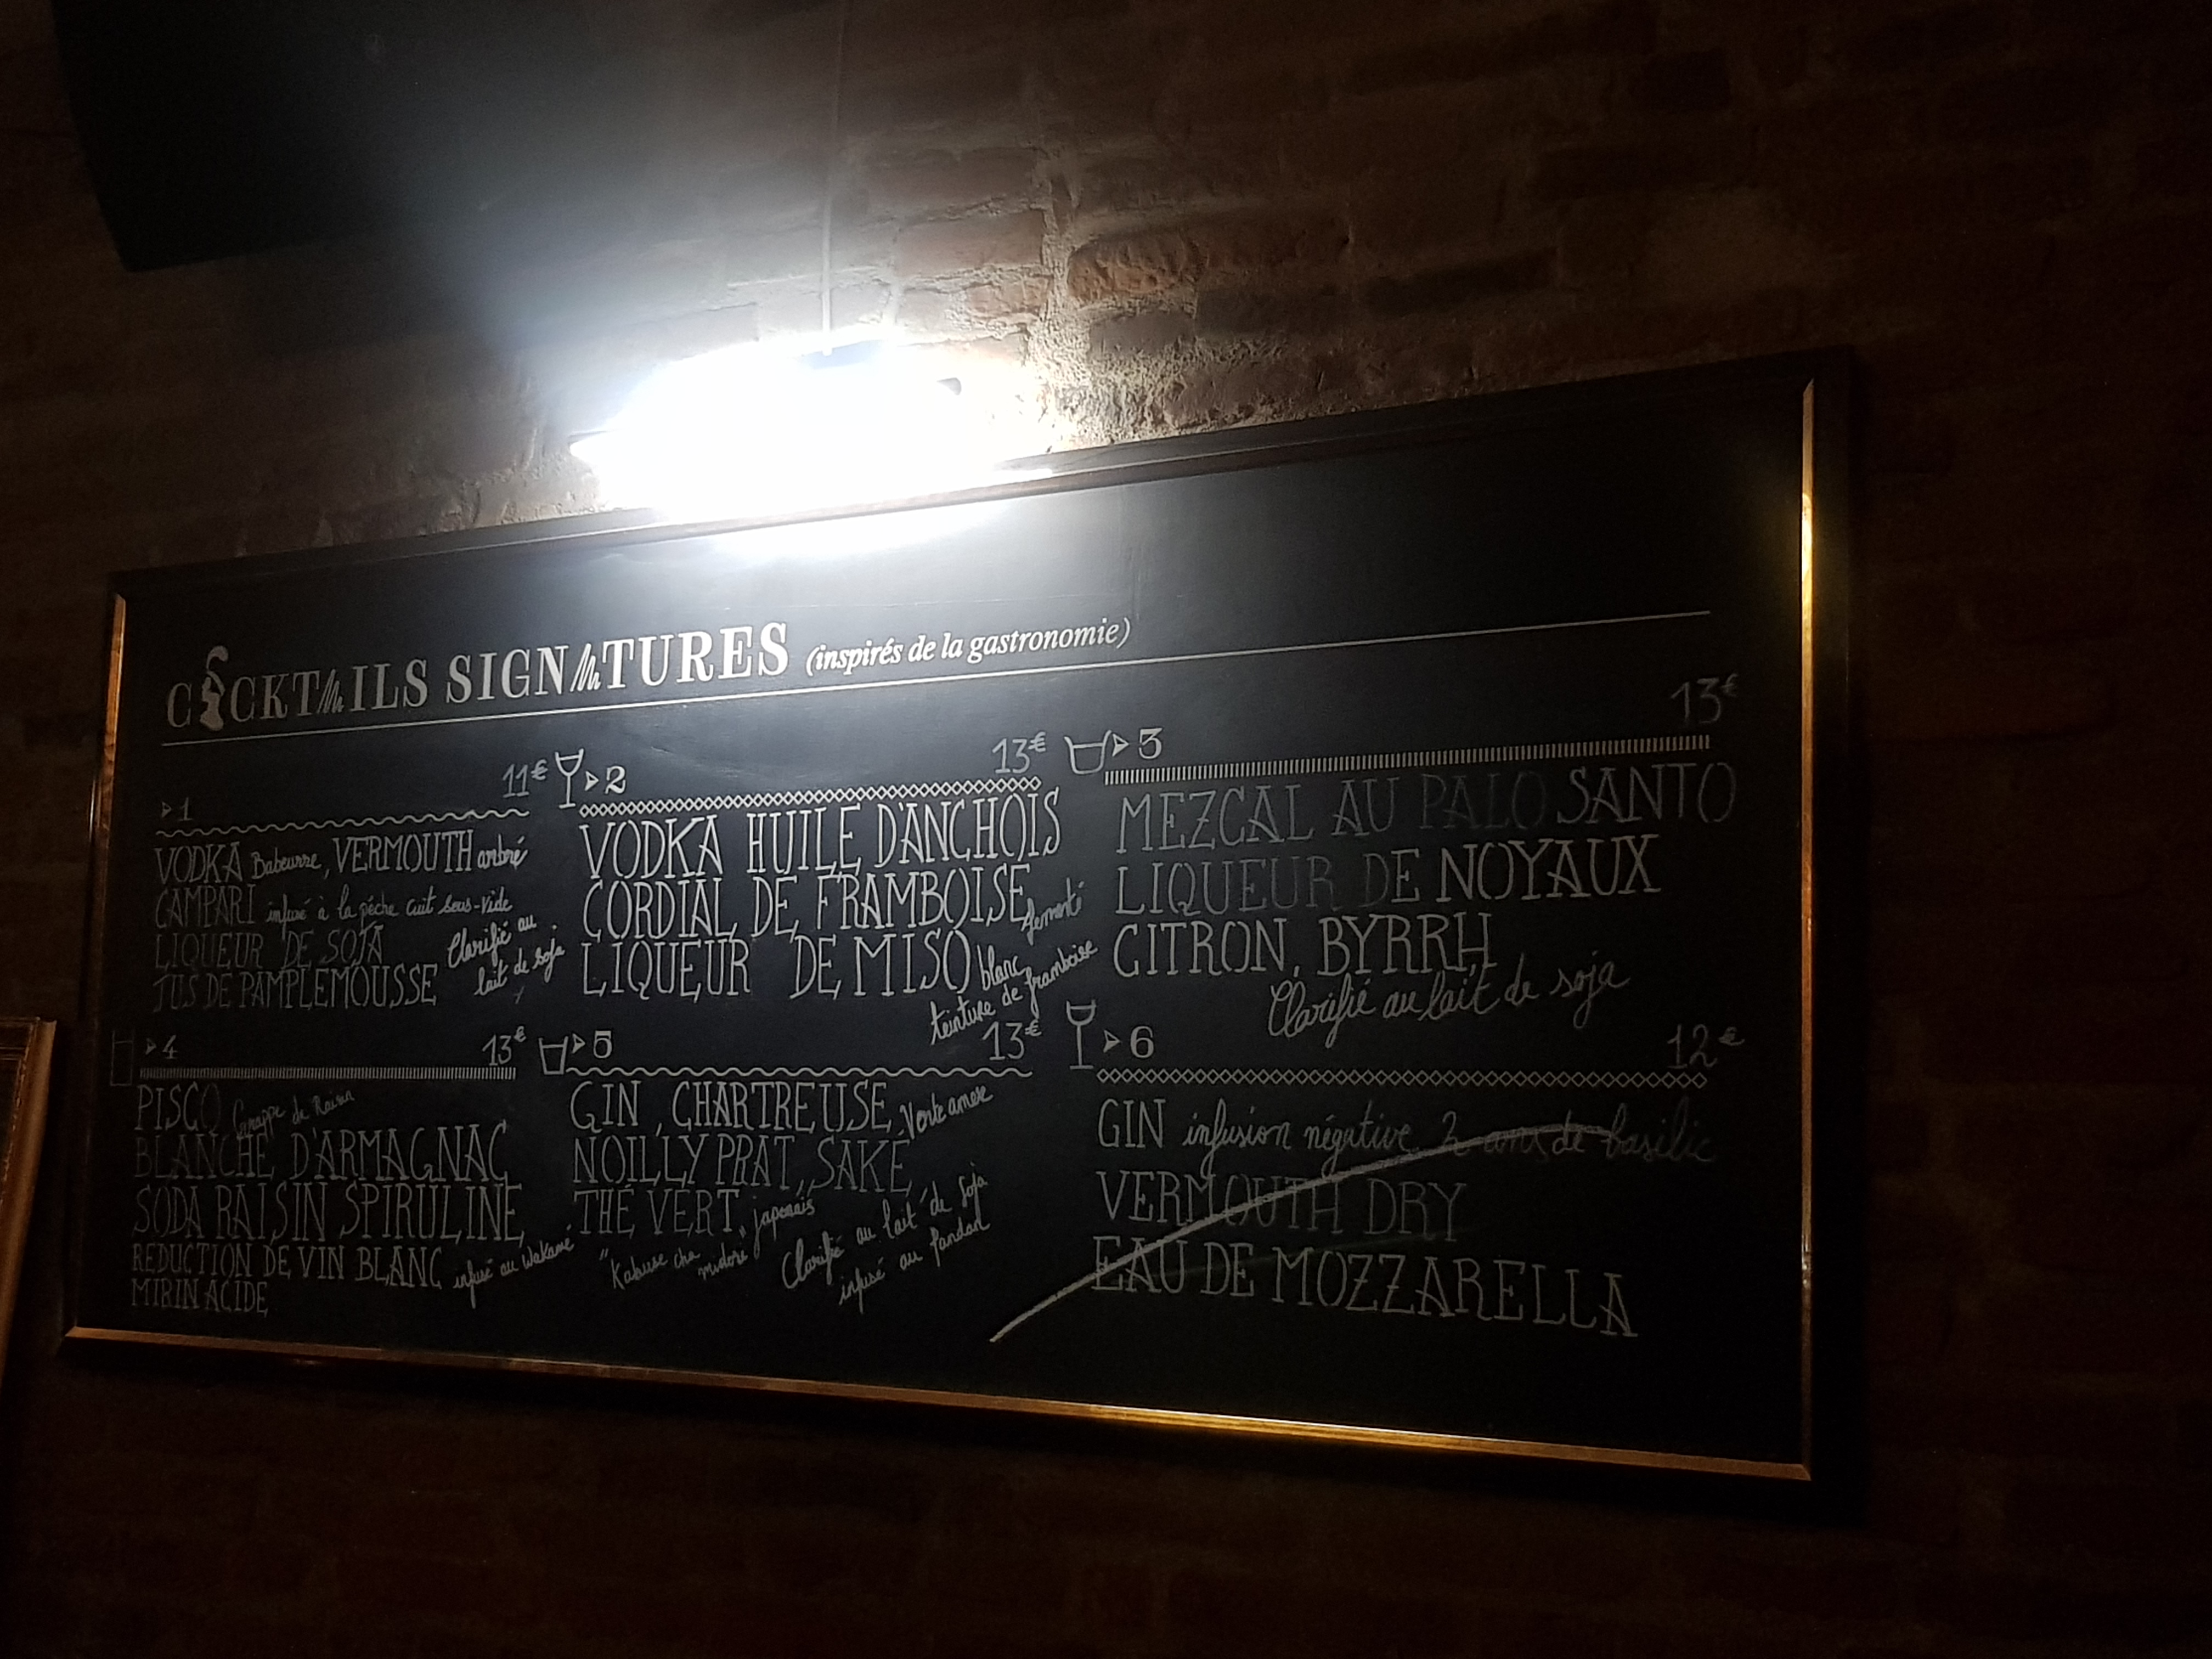 COCKTAILS SIGNATURES (inspirés de la gastronomie)
▷1 11€
VODKA Babeurre, VERMOUTH ambré
CAMPARI infusé à la pêche cuit sous-vide
LIQUEUR DE SOJA
JUS DE PAMPLEMOUSSE
Clarifié au
lait de soja
▷2 13€
VODKA HUILE D'ANCHOIS
CORDIAL DE FRAMBOISE fermenté
LIQUEUR DE MISO blanc
teinture de framboise
▷3 13€
MEZCAL AU PALO SANTO
LIQUEUR DE NOYAUX
CITRON, BYRRH
Clarifié au lait de soja
▷4 13€
PISCO Grappe de Raisin
BLANCHE D'ARMAGNAC
SODA RAISIN SPIRULINE
REDUCTION DE VIN BLANC infusé au Wakamé
MIRIN ACIDE
▷5 13€
GIN, CHARTREUSE Verte
NOILLY PRAT, SAKÉ
THÉ VERT japonais
"Kabuse cha midori"
Clarifié au lait de soja
infusé au Pandan
▷6 12€
GIN infusion négative 2 ans de basilic
VERMOUTH DRY
EAU DE MOZZARELLA